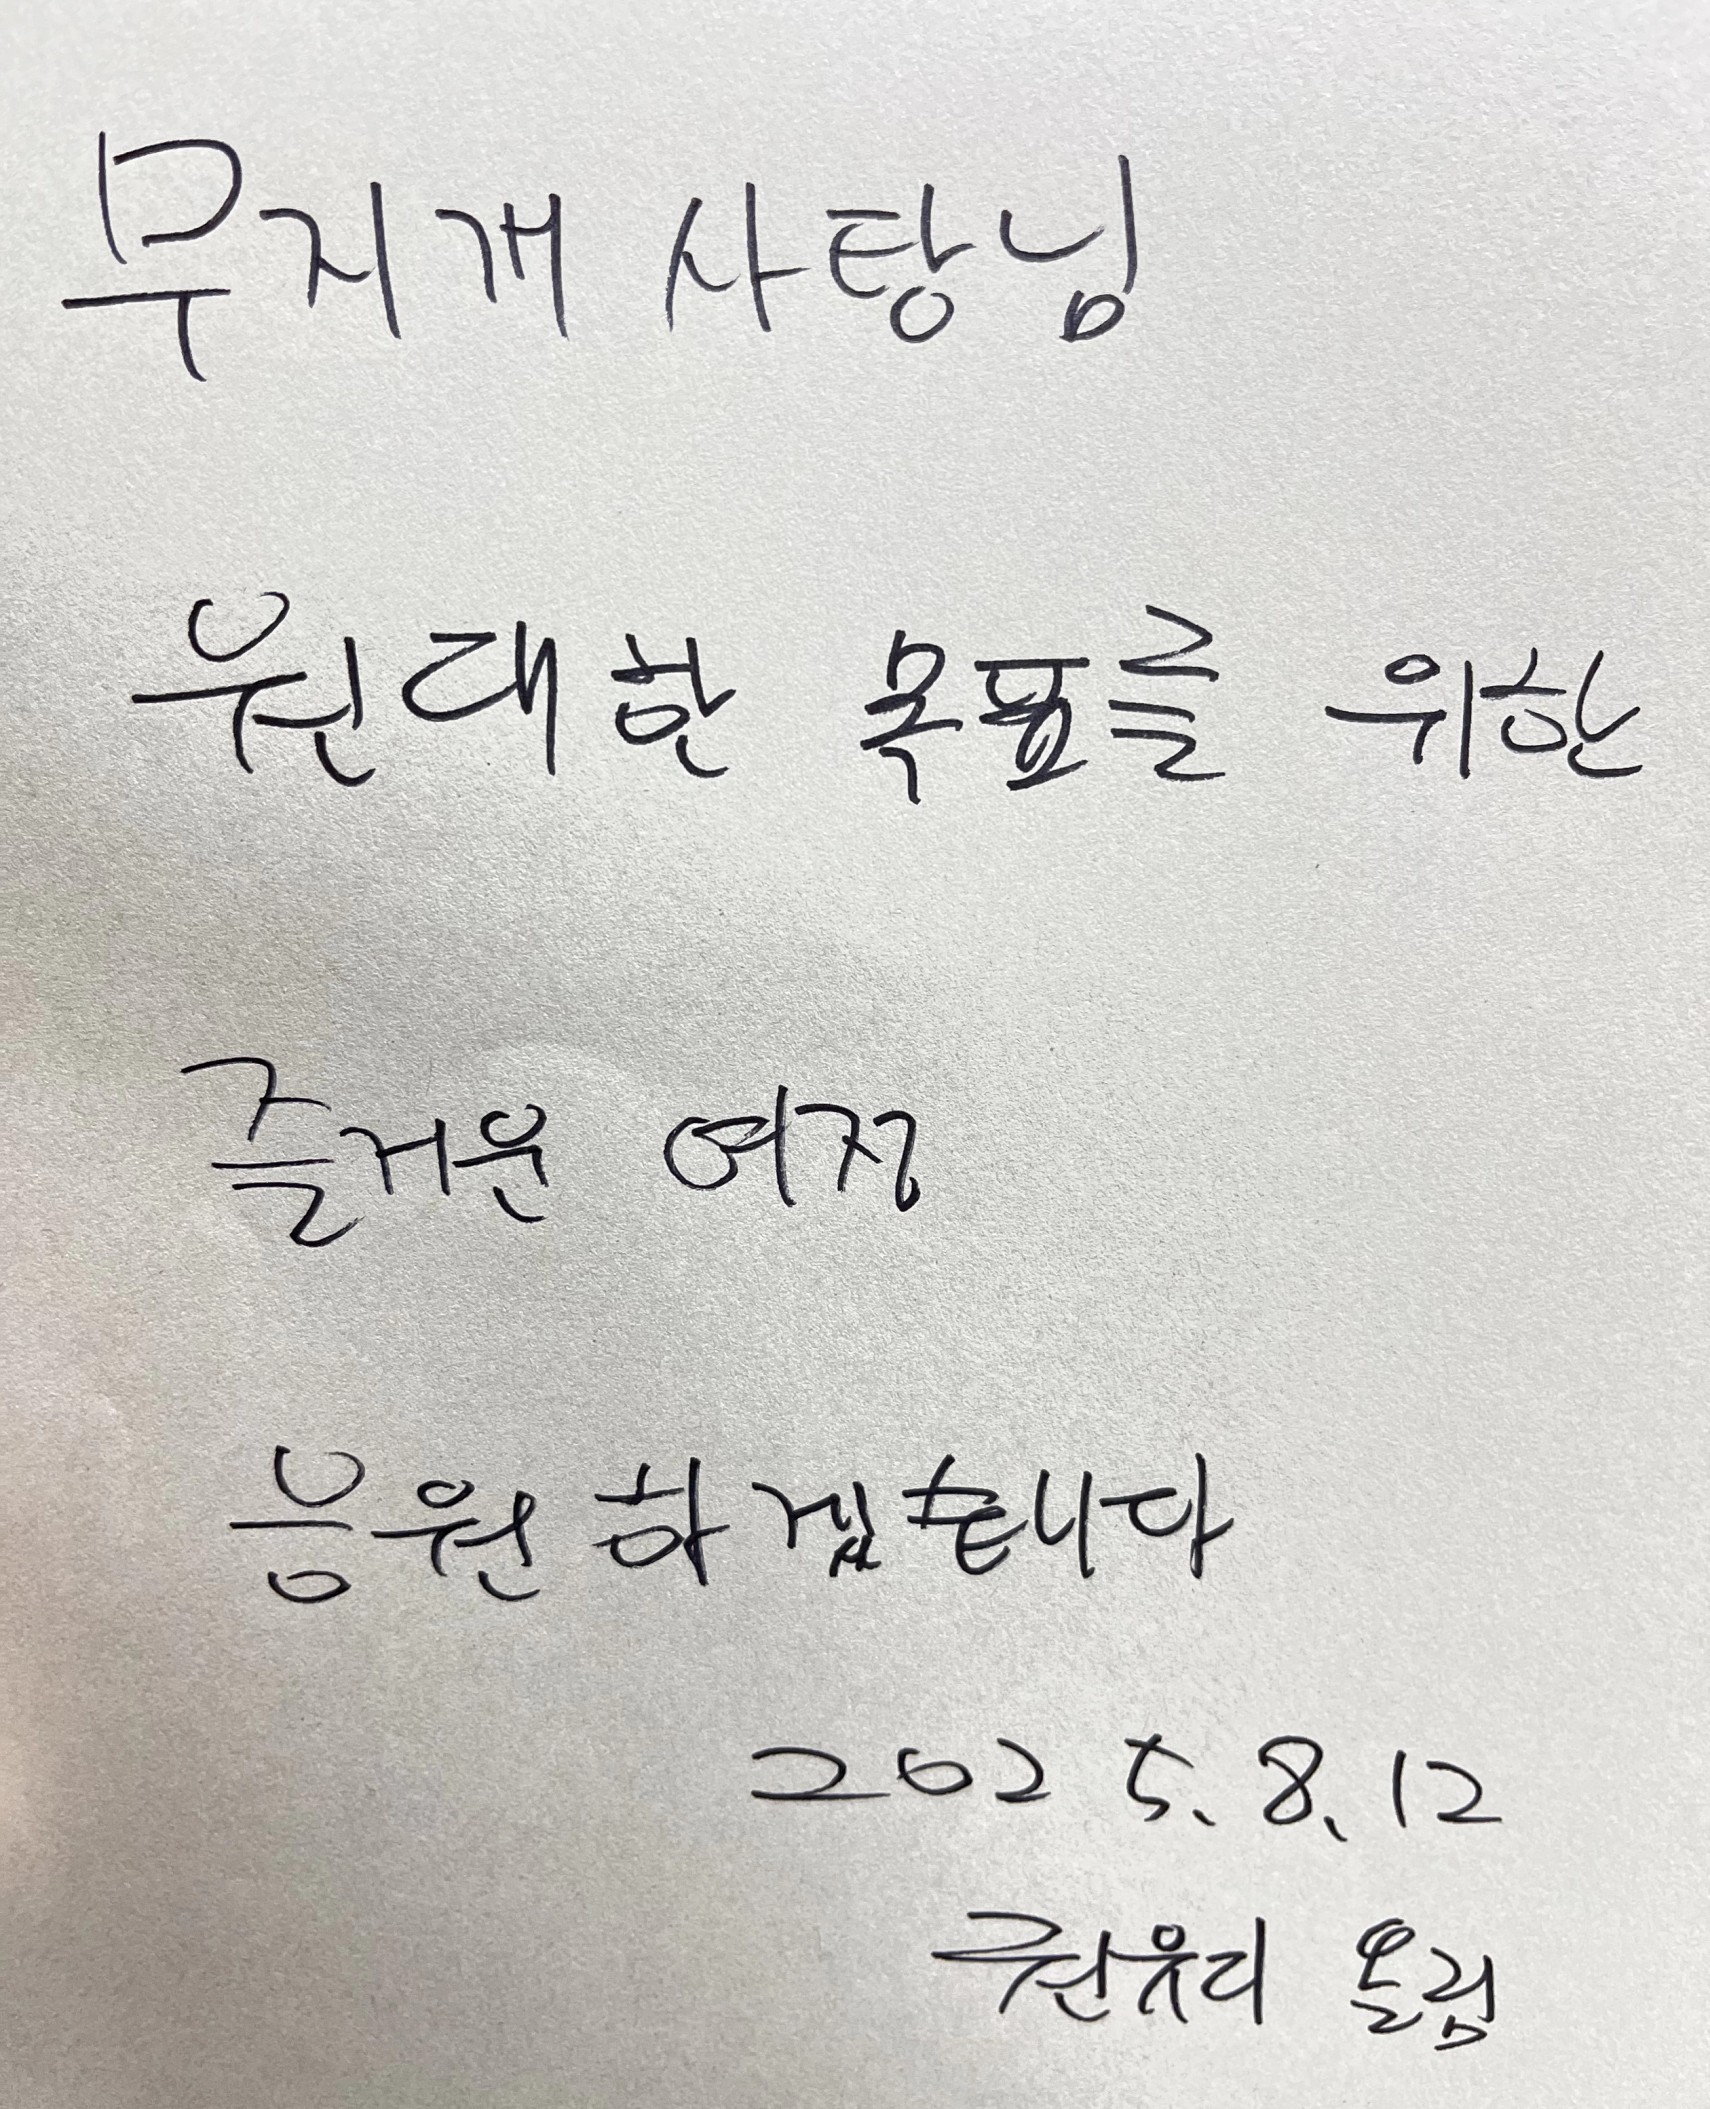 무지개 사탕님
원대한 목표를 위한
즐거운 여정
응원하겠습니다
2025.8.12
권유리 올림